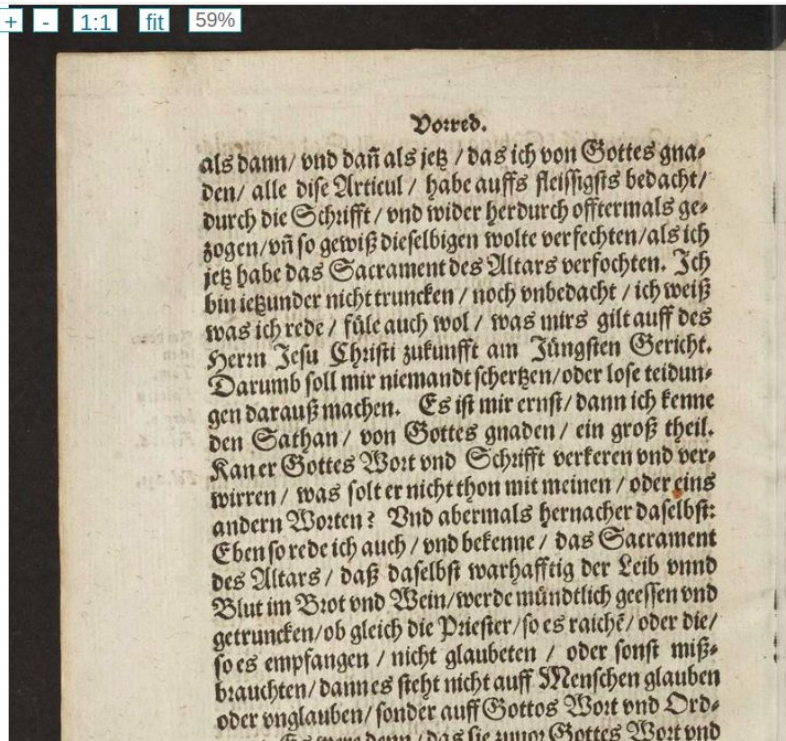 + - 1:1 fit 59%
Vorred.
als dann/ vnd dañ als jetz / das ich von Gottes gna⸗
den/ alle dise Articul / habe auffs fleissigsts bedacht/
durch die Schrifft / vnd wider herdurch offtermals ge⸗
zogen/vñ so gewiß dieselbigen wolte verfechten/als ich
jetz habe das Sacrament des Altars verfochten. Ich
bin ietzunder nicht truncken / noch vnbedacht / ich weiß
was ich rede / füle auch wol / was mirs gilt auff des
Herrn Jesu Christi zukunfft am Jüngsten Gericht.
Darumb soll mir niemandt schertzen/oder lose teidun⸗
gen darauß machen. Es ist mir ernst/ dann ich kenne
den Sathan / von Gottes gnaden / ein groß theil.
Kan er Gottes Wort vnd Schrifft verkeren vnd ver⸗
wirren / was solt er nicht thon mit meinen / oder eins
andern Worten? Vnd abermals hernacher daselbst:
Eben so rede ich auch / vnd bekenne / das Sacrament
des Altars / daß daselbst warhafftig der Leib vnnd
Blut im Brot vnd Wein/werde mündtlich geessen vnd
getruncken/ob gleich die Priester/so es raichẽ/ oder die/
so es empfangen / nicht glaubeten / oder sonst miß⸗
brauchten/ dann es steht nicht auff Menschen glauben
oder vnglauben/ sonder auff Gottos Wort vnd Ord⸗
Es were denn / das sie zuuor Gottes Wort vnd